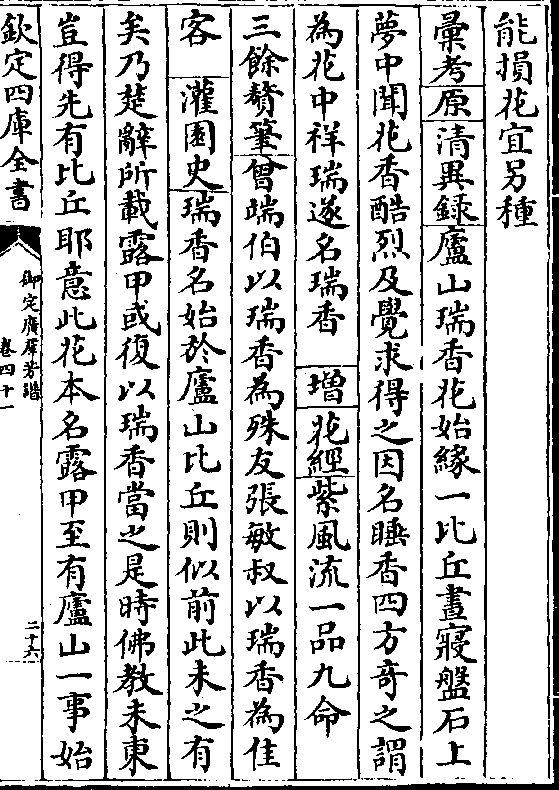 能損花宜另種
彚考原清異録廬山瑞香花始緣一比丘晝寢盤石上
夢中聞花香酷烈及覺求得之因名睡香四方奇之謂
為花中祥瑞遂名瑞香　增　花經紫風流一品九命
三餘贅筆曾端伯以瑞香為殊友張敏叔以瑞香為佳
客　灌園史瑞香名始於廬山比丘則似前此未之有
矣乃楚辭所載露甲或復以瑞香當之是時佛教未東
豈得先有比丘耶意此花本名露甲至有廬山一事始
欽定四庫全書
御定廣羣芳譜
卷四十一
二十六